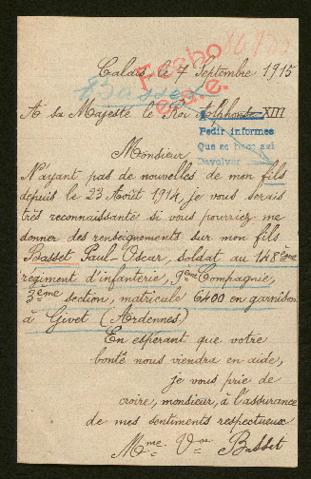 Calais, le 7 Septembre 1915
Fecho
Basset
A sa Majesté le Roi Alphonse XIII
Pedir informes
Que se haga así
Devolver
Monsieur
N'ayant pas de nouvelles de mon fils
depuis le 23 Août 1914, je vous serais
très reconnaissante si vous pourriez me
donner des renseignements sur mon fils
Basset Paul-Oscar, soldat au 148ème
régiment d'infanterie, 9ème Compagnie,
3ème section, matricule 6400 en garnison
à Givet (Ardennes)
En espérant que votre
bonté nous viendra en aide,
je vous prie de
croire, monsieur, à l'assurance
de mes sentiments respectueux
Mme Vve Basset